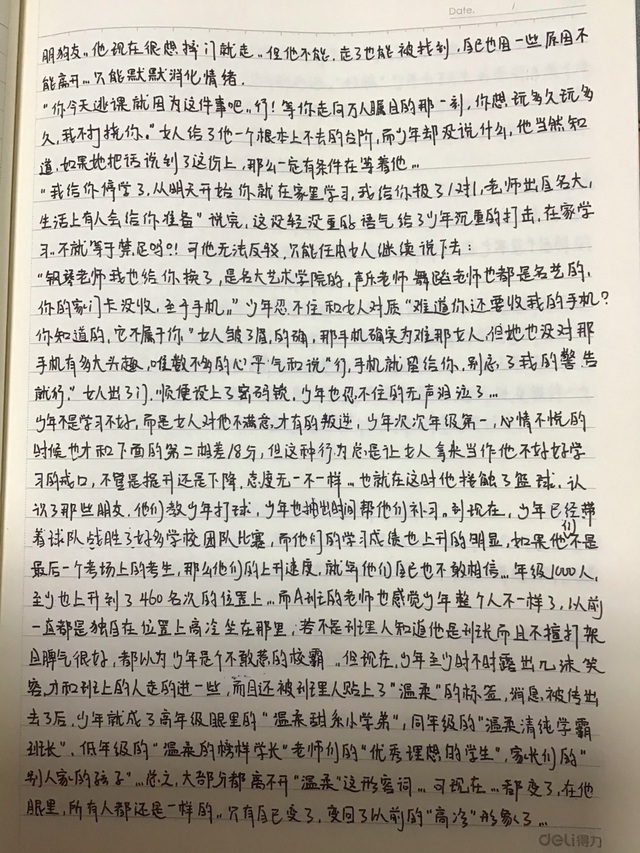 Date.
朋狗友。他现在很想摔门就走。但他不能,走了也能被找到,自己也因一些原因不
能离开...只能默默消化情绪.
“你今天逃课就因为这件事吧。行!等你走向万人瞩目的那一刻,你想玩多久玩多
久,我不打扰你。”女人给了他一个根本上不去的台阶,而少年却没说什么,他当然知
道,如果她把话说到了这份上,那么一定有条件在等着他...
“我给你停学了,从明天开始你就在家里学习,我给你报了1对1,老师出自名大,
生活上有人会给你准备”说完,这没轻没重的语气给了少年沉重的打击,在家学
习。不就等于禁足吗?!可他无法反驳,只能任由女人继续说下去:
“钢琴老师我也给你换了,是名大艺术学院的,声乐老师舞蹈老师也都是名艺的,
你的家门卡没收,至于手机。”少年忍不住和女人对质“难道你还要收我的手机?
你知道的,它不属于你”女人皱了眉,的确,那手机确实为难那女人,但她也没对那
手机有多大兴趣,唯数不多的心平气和说“行,手机就留给你,别忘了我的警告
就行。”女人出了门.顺便设上了密码锁,少年也忍不住的无声泪泣了...
少年不是学习不好,而是女人对他不满意,才有的叛逆,少年次次年级第一,心情不悦的
时候也才和下面的第二相差18分,但这种行为总是让女人拿来当作他不好好学
习的戒口,不管是提升还是下降,态度无一不一样...也就在这时他接触了篮球.认
识了那些朋友,他们教少年打球,少年也抽出时间帮他们补习。到现在,少年已经带
着球队战胜了好多学校团队比赛,而他们的学习成绩也上升的明显,如果他们不是
最后一个考场上的考生,那么他们的上升速度,就算他们自己也不敢相信...年级1000人,
至少也上升到了460名次的位置上...而A班的老师也感觉少年整个人不一样了,以前
一直都是独自在位置上高冷坐在那里,若不是班里人知道他是班长而且不擅打架
且脾气很好,都以为少年是个不敢惹的校霸...但现在,少年至少时不时露出几沫笑
容,才和班上的人走的进一些,而且还被班里人贴上了“温柔”的标签,消息被传出
去了后,少年就成了高年级眼里的“温柔甜系小学弟”,同年级的“温柔清纯学霸
班长”、低年级的“温柔的榜样学长”老师们的“优秀理想的学生”,家长们的“
别人家的孩子”...总之,大部分都离不开“温柔”这形容词...可现在...都变了,在他
眼里,所有人都还是一样的。只有自己变了,变回了以前的“高冷”形象了...
deli得力